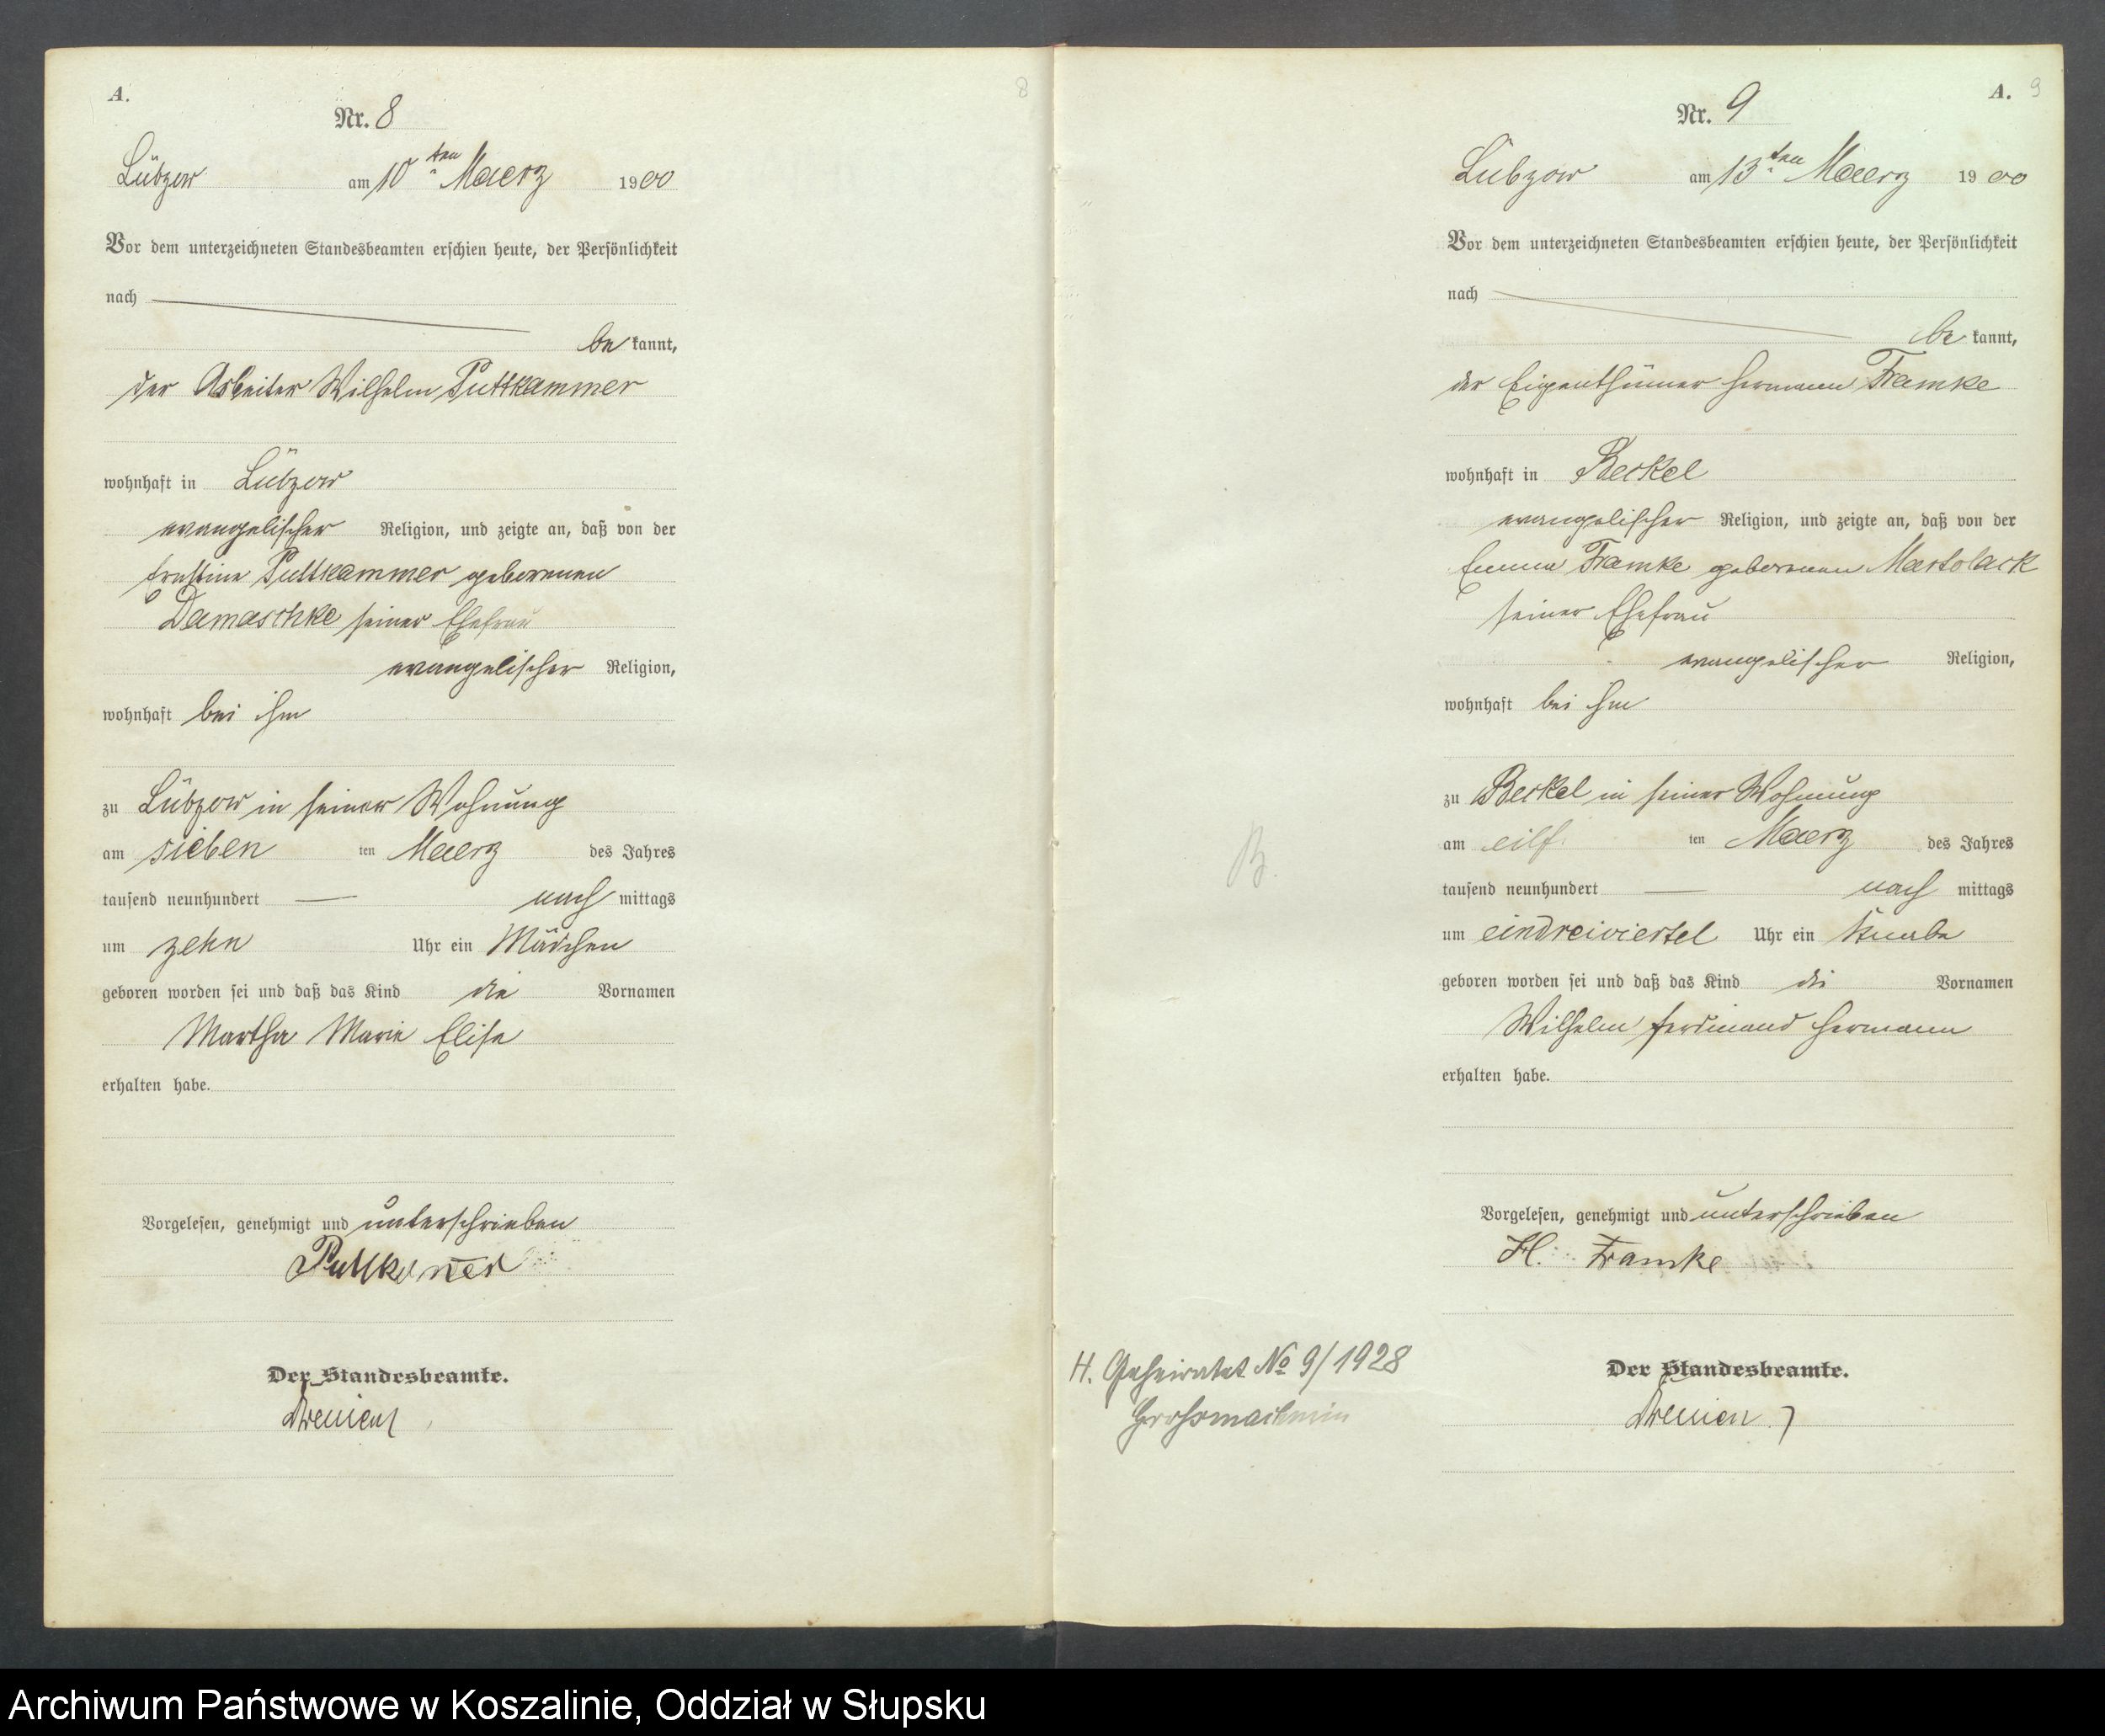 A.
8
Nr. 8
Lübzow am 10ten Maerz 1900
Vor dem unterzeichneten Standesbeamten erschien heute, der Persönlichkeit
nach
be kannt,
der Arbeiter Wilhelm Puttkammer
wohnhaft in Lübzow
evangelischer Religion, und zeigte an, daß von der
Ernstine Puttkammer geborenen
Damaschke seiner Ehefrau
evangelischer Religion,
wohnhaft bei ihm
zu Lübzow in seiner Wohnung
am sieben ten Maerz des Jahres
tausend neunhundert nach mittags
um zehn Uhr ein Mädchen
geboren worden sei und daß das Kind die Vornamen
Martha Marie Elise
erhalten habe.
Vorgelesen, genehmigt und unterschrieben
Der Standesbeamte.
A. 9
Nr. 9
Lübzow am 13ten Maerz 1900
Vor dem unterzeichneten Standesbeamten erschien heute, der Persönlichkeit
nach
be kannt,
der Eigenthümer Hermann Framke
wohnhaft in Beckel
evangelischer Religion, und zeigte an, daß von der
Emma Framke geborenen Martolack
seiner Ehefrau
evangelischer Religion,
wohnhaft bei ihm
zu Beckel in seiner Wohnung
am eilf ten Maerz des Jahres
tausend neunhundert nach mittags
um eindreiviertel Uhr ein Knabe
geboren worden sei und daß das Kind die Vornamen
Wilhelm Ferdinand Hermann
erhalten habe.
Vorgelesen, genehmigt und unterschrieben
H. Framke
Der Standesbeamte.
B.
H. Geheiratet No 9/1928
Archiwum Państwowe w Koszalinie, Oddział w Słupsku